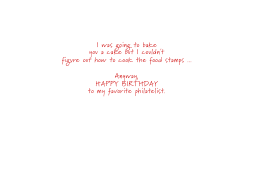 I was going to bake
you a cake but I couldn't
figure out how to cook the food stamps ...
Anyway,
HAPPY BIRTHDAY
to my favorite philatelist.